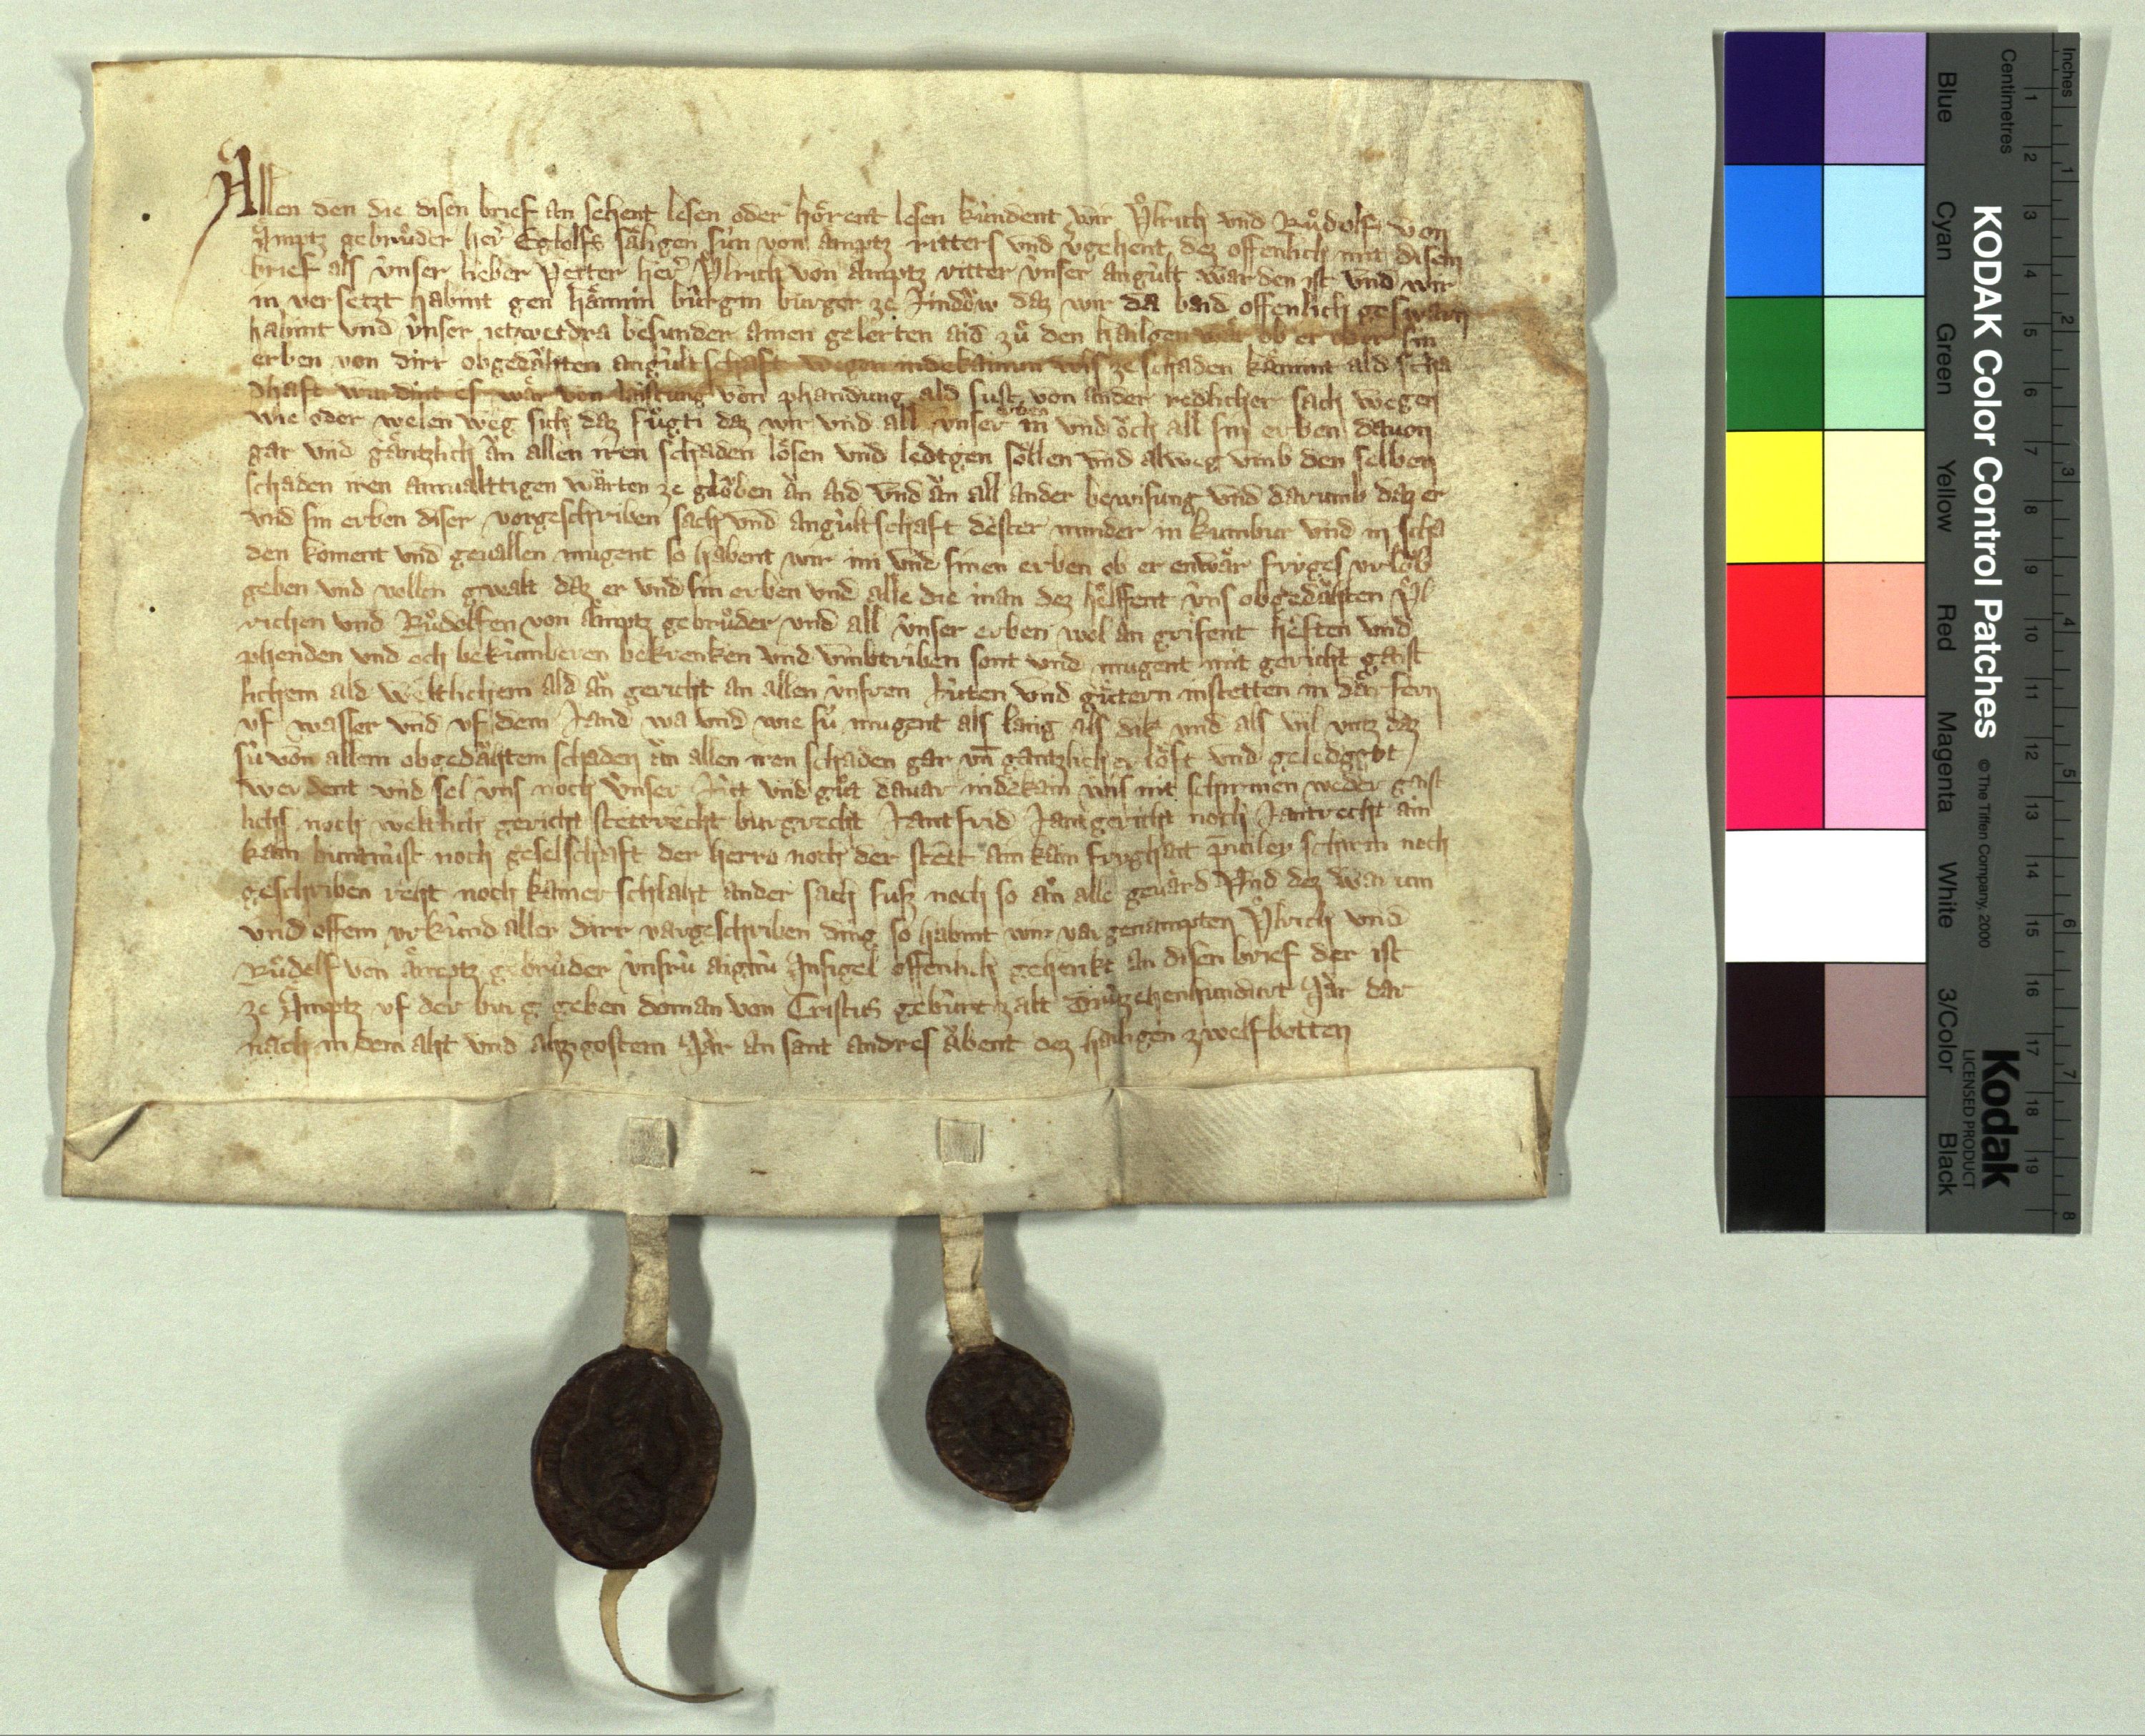 Allen den die disen brief an sehent lesen oder hörent lesen kündent wir Ůlrich vnd Růdolf von
Ämptz gebrůder her Eglolfs säligen sün von ämptz ritters vnd v̈gehent dez offenlich mit disem
brief als v̈nser lieber Vetter her Ůlrich von ämptz ritter v̈nser angült warden ist vnd wir
in versetzt habint gen hännin bürgin burger ze Lindöw daz wir da baid offenlich geswarn
habint vnd v̈nser ietwetdra besunder ainen gelerten aid zů den hailgen wär ob er oder sin
erben von dirr obgedähten angült schaft wegen indekainen wis ze schaden kämint ald scha
dhaft wurdint es wär von laistung von phandung ald sust von ander redlicher sach wegen
wie oder welen weg sich daz fůgti daz wir vnd all v̈nser erben in vnd öch all sin erben dauon
gar vnd gäntzlich än allen iren schaden lösen vnd ledigen söllen vnd alweg vmb den selben
schaden iren ainualttigen warten ze glöben än aid vnd än all ander bewisung vnd darumb daz er
vnd sin erben diser vorgeschriben sach vnd angült schaft dester minder in kumber vnd in scha
den koment vnd geuallen mugent so habent wir im vnd sinen erben ob er enwär fryges vrlob
geben vnd vollen gwalt daz er vnd sin erben vnd alle die inan dez helffent v̈ns obgedähten Ůl
richen vnd Růdolfen von ämptz gebrůder vnd all v̈nser erben wol an grifent heften vnd
phenden vnd och bekümberen bekrenken vnd vmbtriben sont vnd mugent mit gericht gaist
lichem ald weltlichem ald än gericht an allen v̈nsren lüten vnd gütern in stetten in därfern
vf wasser vnd vf dem Land wa vnd wie sü mugent als lang als dik vnd als vil vntz daz
sü von allem obgedähtem schaden än allen iren schaden gar vn̄ gäntzlich erlöst vnd geledgot
werdent vnd sol v̈ns noch v̈nser Lüt vnd gůt dauar indekain wis nit schirmen weder gaist
lichs noch weltlich gericht stettrecht burgrecht Lantfrid Lantgericht noch Lantrecht ain
kain buntnüst noch geselschaft der herro noch der stett ain kain fryghait priuiley schirm noch
geschriben reht noch kainer schlaht ander sach susz noch so än alle geuärd Vnd dez war vm
vnd offem vrkünd aller dirr vargeschriben ding so habint wir vargenampten Ůlrich vnd
Růdolf von ämptz gebrůder v̈nsrü aignü Insigel offenlich gehenkt an disen brief der ist
ze Ämptz vf der burg geben do man von Cristus gebürt zalt Drüzehenhundirt Jär dar
nach in dem aht vnd ahzigostem Jär an sant andres äbent dez hailigen zwelfbotten
KODAK Color Control Patches
© The Tiffen Company, 2000
Kodak
LICENSED PRODUCT
Blue Cyan Green Yellow Red Magenta White 3/Color Black
Centimetres
1 2 3 4 5 6 7 8 9 10 11 12 13 14 15 16 17 18 19
Inches
1 2 3 4 5 6 7 8